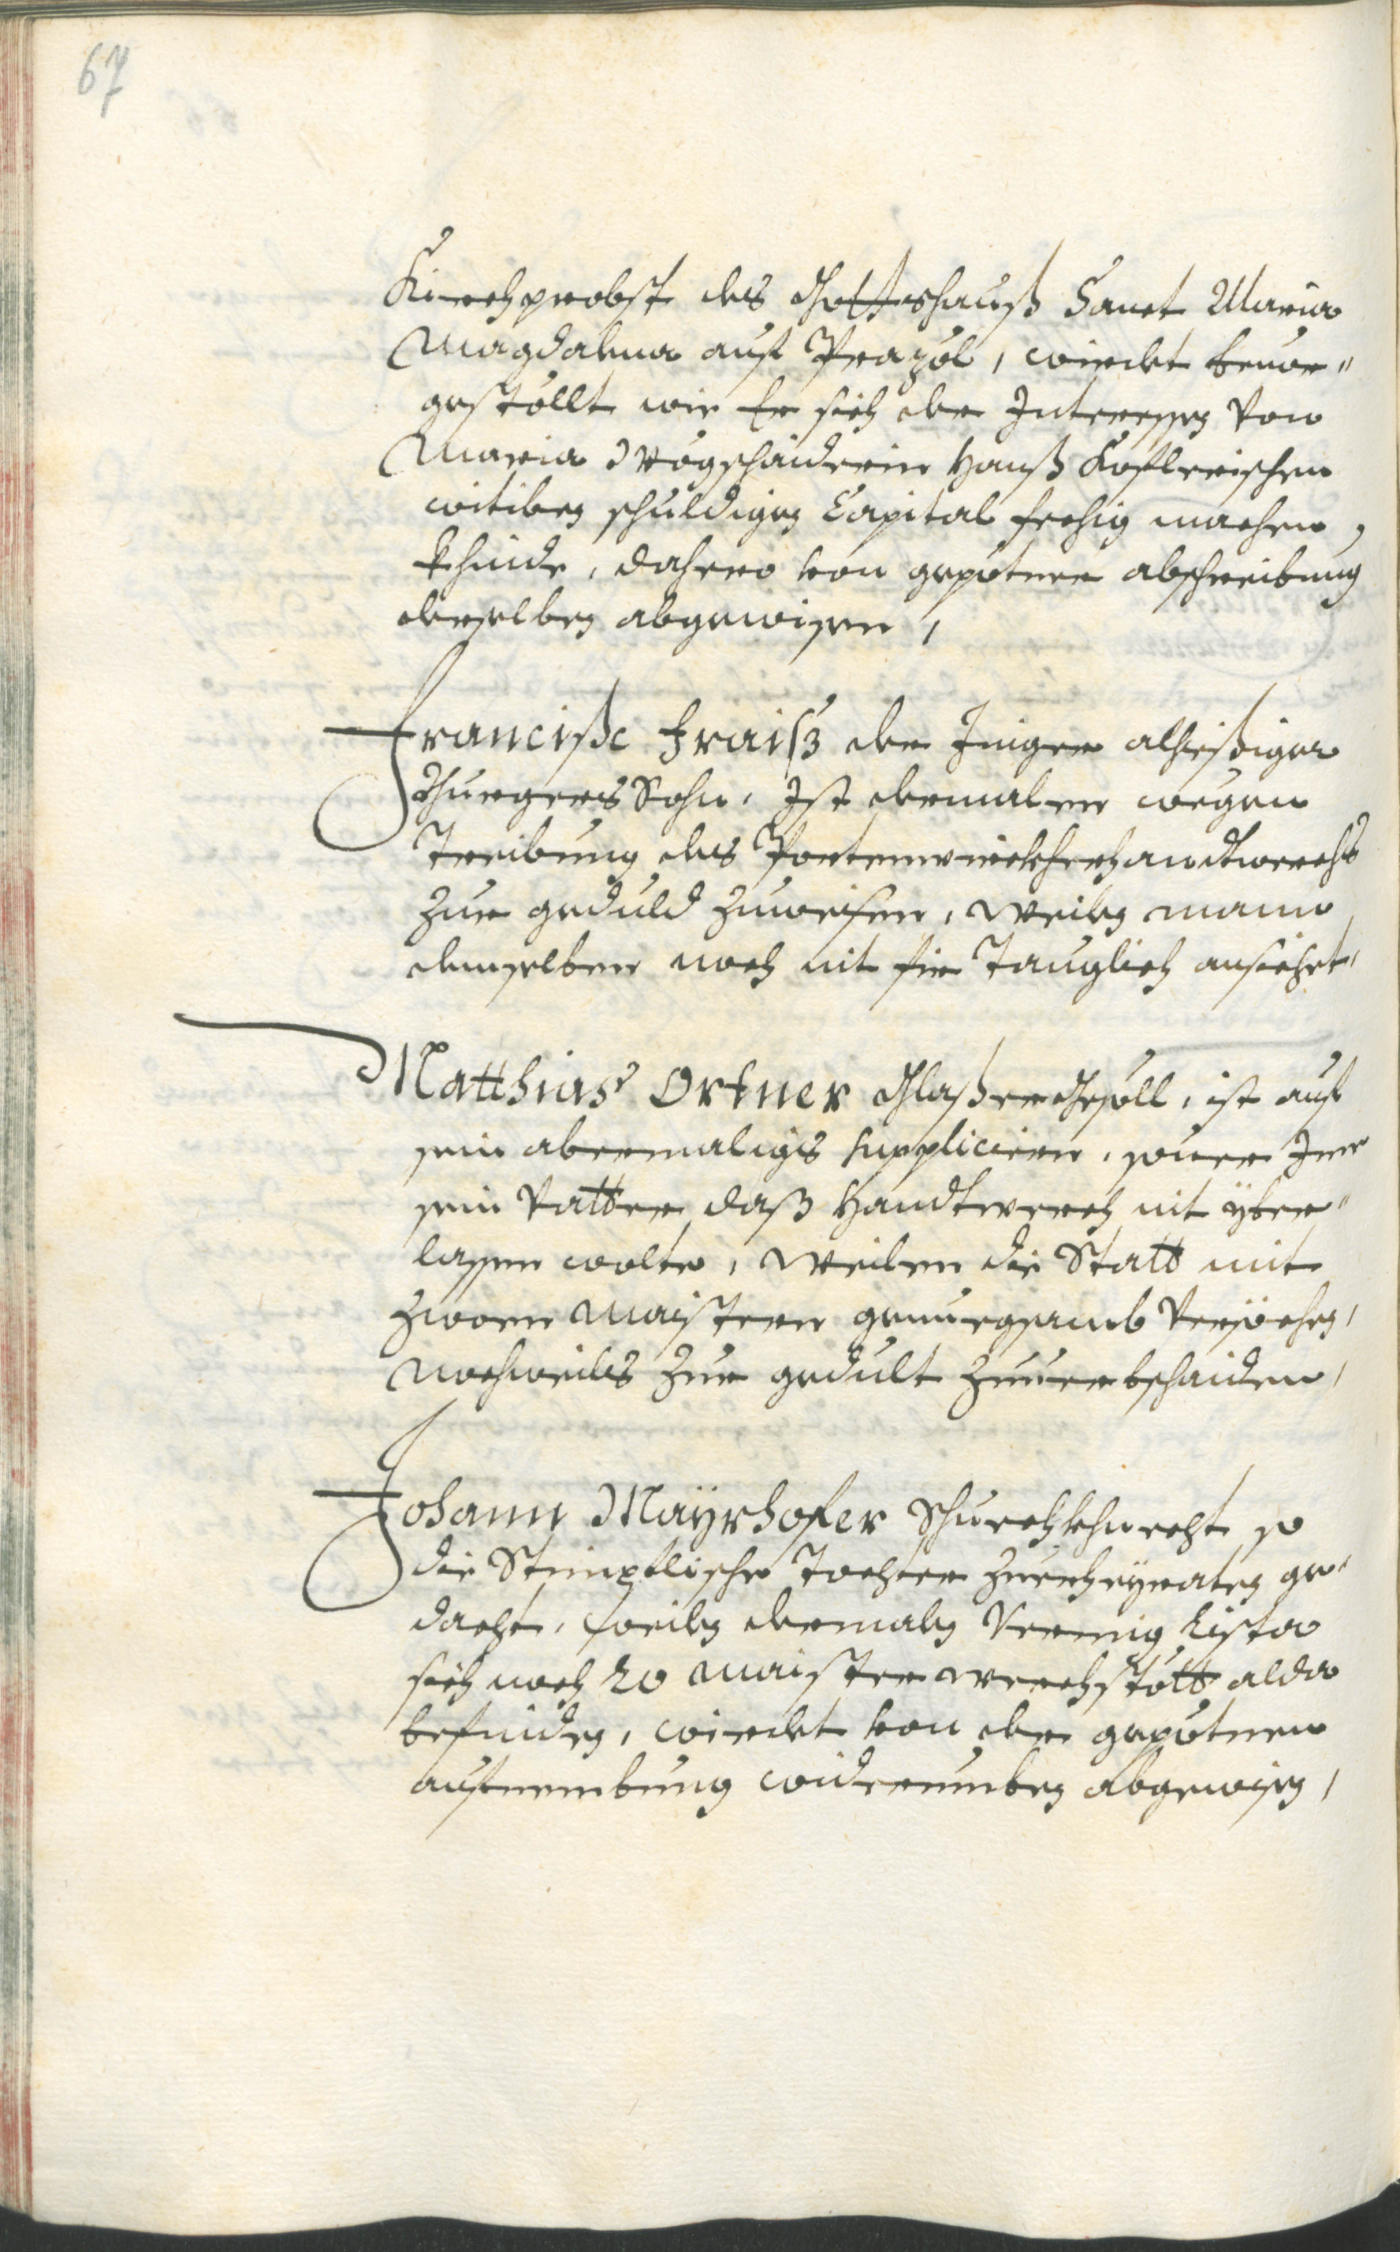 67
Kirchprobst des Gottshauß Sanct Maria
Magdalena auf Prazöl, wirdet beuor=
gestöllt wie Er sich der Interessen von
Maria Wögschaiderin Hanß Koflerischen
witiben schuldigen Capital fechig machen,
khinde, dahero von gepotner abschreibung
derselben abgewisen,
Francißc Fraiß der Jnger alhießiger
Burgers Sohn, Ist dermalen wegen
Treibung des Portenwirckherhandtwerchs
zur geduld zuweisen, weilen mann
demselben noch nit fir Tauglich ansiehet,
Matthias Ortner Glaßer Gesöll, ist auf
sein abermaligs suppliciern, souer Ime
sein Vatter daß Handtwerch nit yber=
lassen wolte, weilen die Statt mit
zwoen Maistern genuegsamb versöchen,
nochweils zur gedult zuuerbschaiden,
Johann Mayrhofer Schuechkhnecht so
die Stimpflische Tochter zuerheyraten ge=
dacht, weilen dermalen vermig Lista
sich noch 20 maister werchstött alda
befinden, wirdet von der gepotnen
aufnembung widerumben abgewisen,